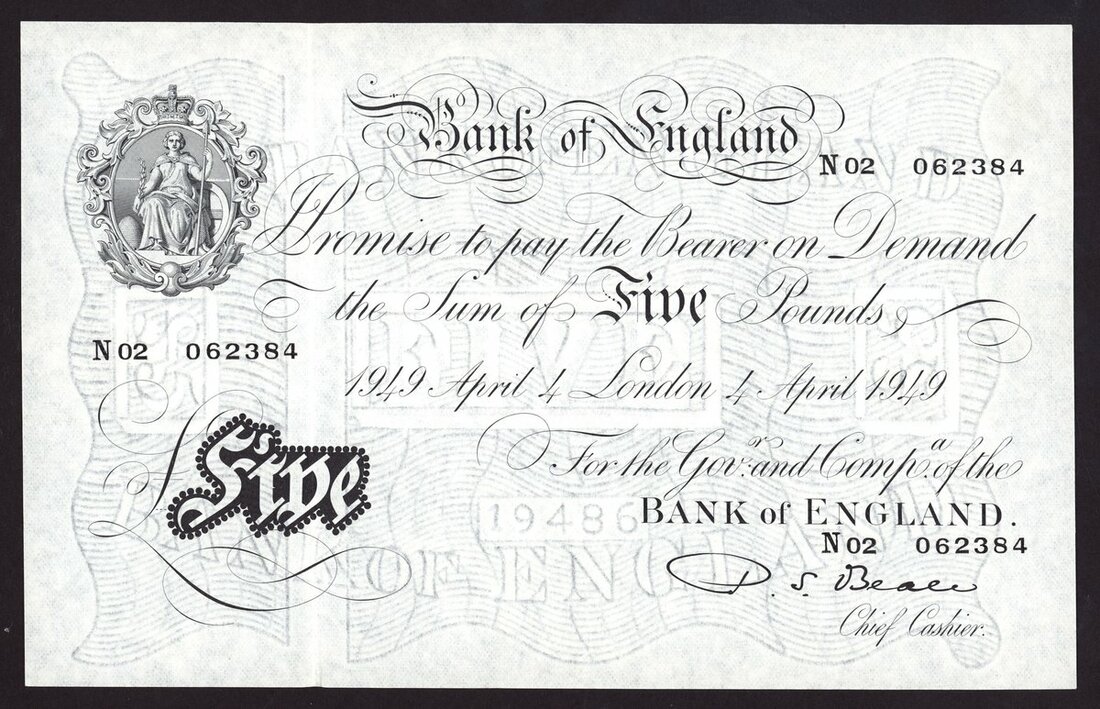 Bank of England
N 02 062384
I Promise to pay the Bearer on Demand
the Sum of Five Pounds
N 02 062384
1949 April 4 London 4 April 1949
For the Gov.r and Comp.a of the
£Five
19486
BANK of ENGLAND.
N 02 062384
P. S. Beale
Chief Cashier.
FIVE
BANK OF ENGLAND